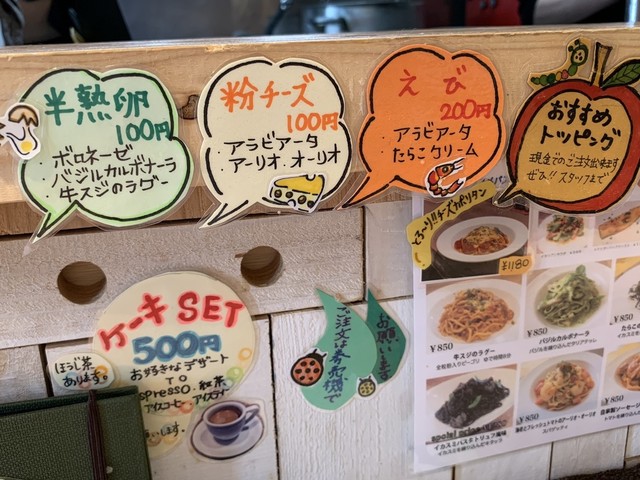 半熟卵
100円
ボロネーゼ
バジルカルボナーラ
牛スジのラグー
粉チーズ
100円
アラビアータ
アーリオ.オーリオ
えび
200円
アラビアータ
たらこクリーム
おすすめ
トッピング
現金でのご注文出来ます
ぜひ!! スタッフまで
とろ〜り!!チーズナポリタン
¥1180
ケーキ SET
500円
お好きなデザート
TO
spresso
紅茶
アイスコーヒー
アイスティー
ほうじ茶
あります。
します。
お願いします
ご注文は券売機で
¥850
牛スジのラグー
¥850
バジルカルボナーラ
¥850
たらこ
¥850
イカスミパスタ トリュフ風味
¥850
スパゲッティ
¥850
自家製ソーセージ